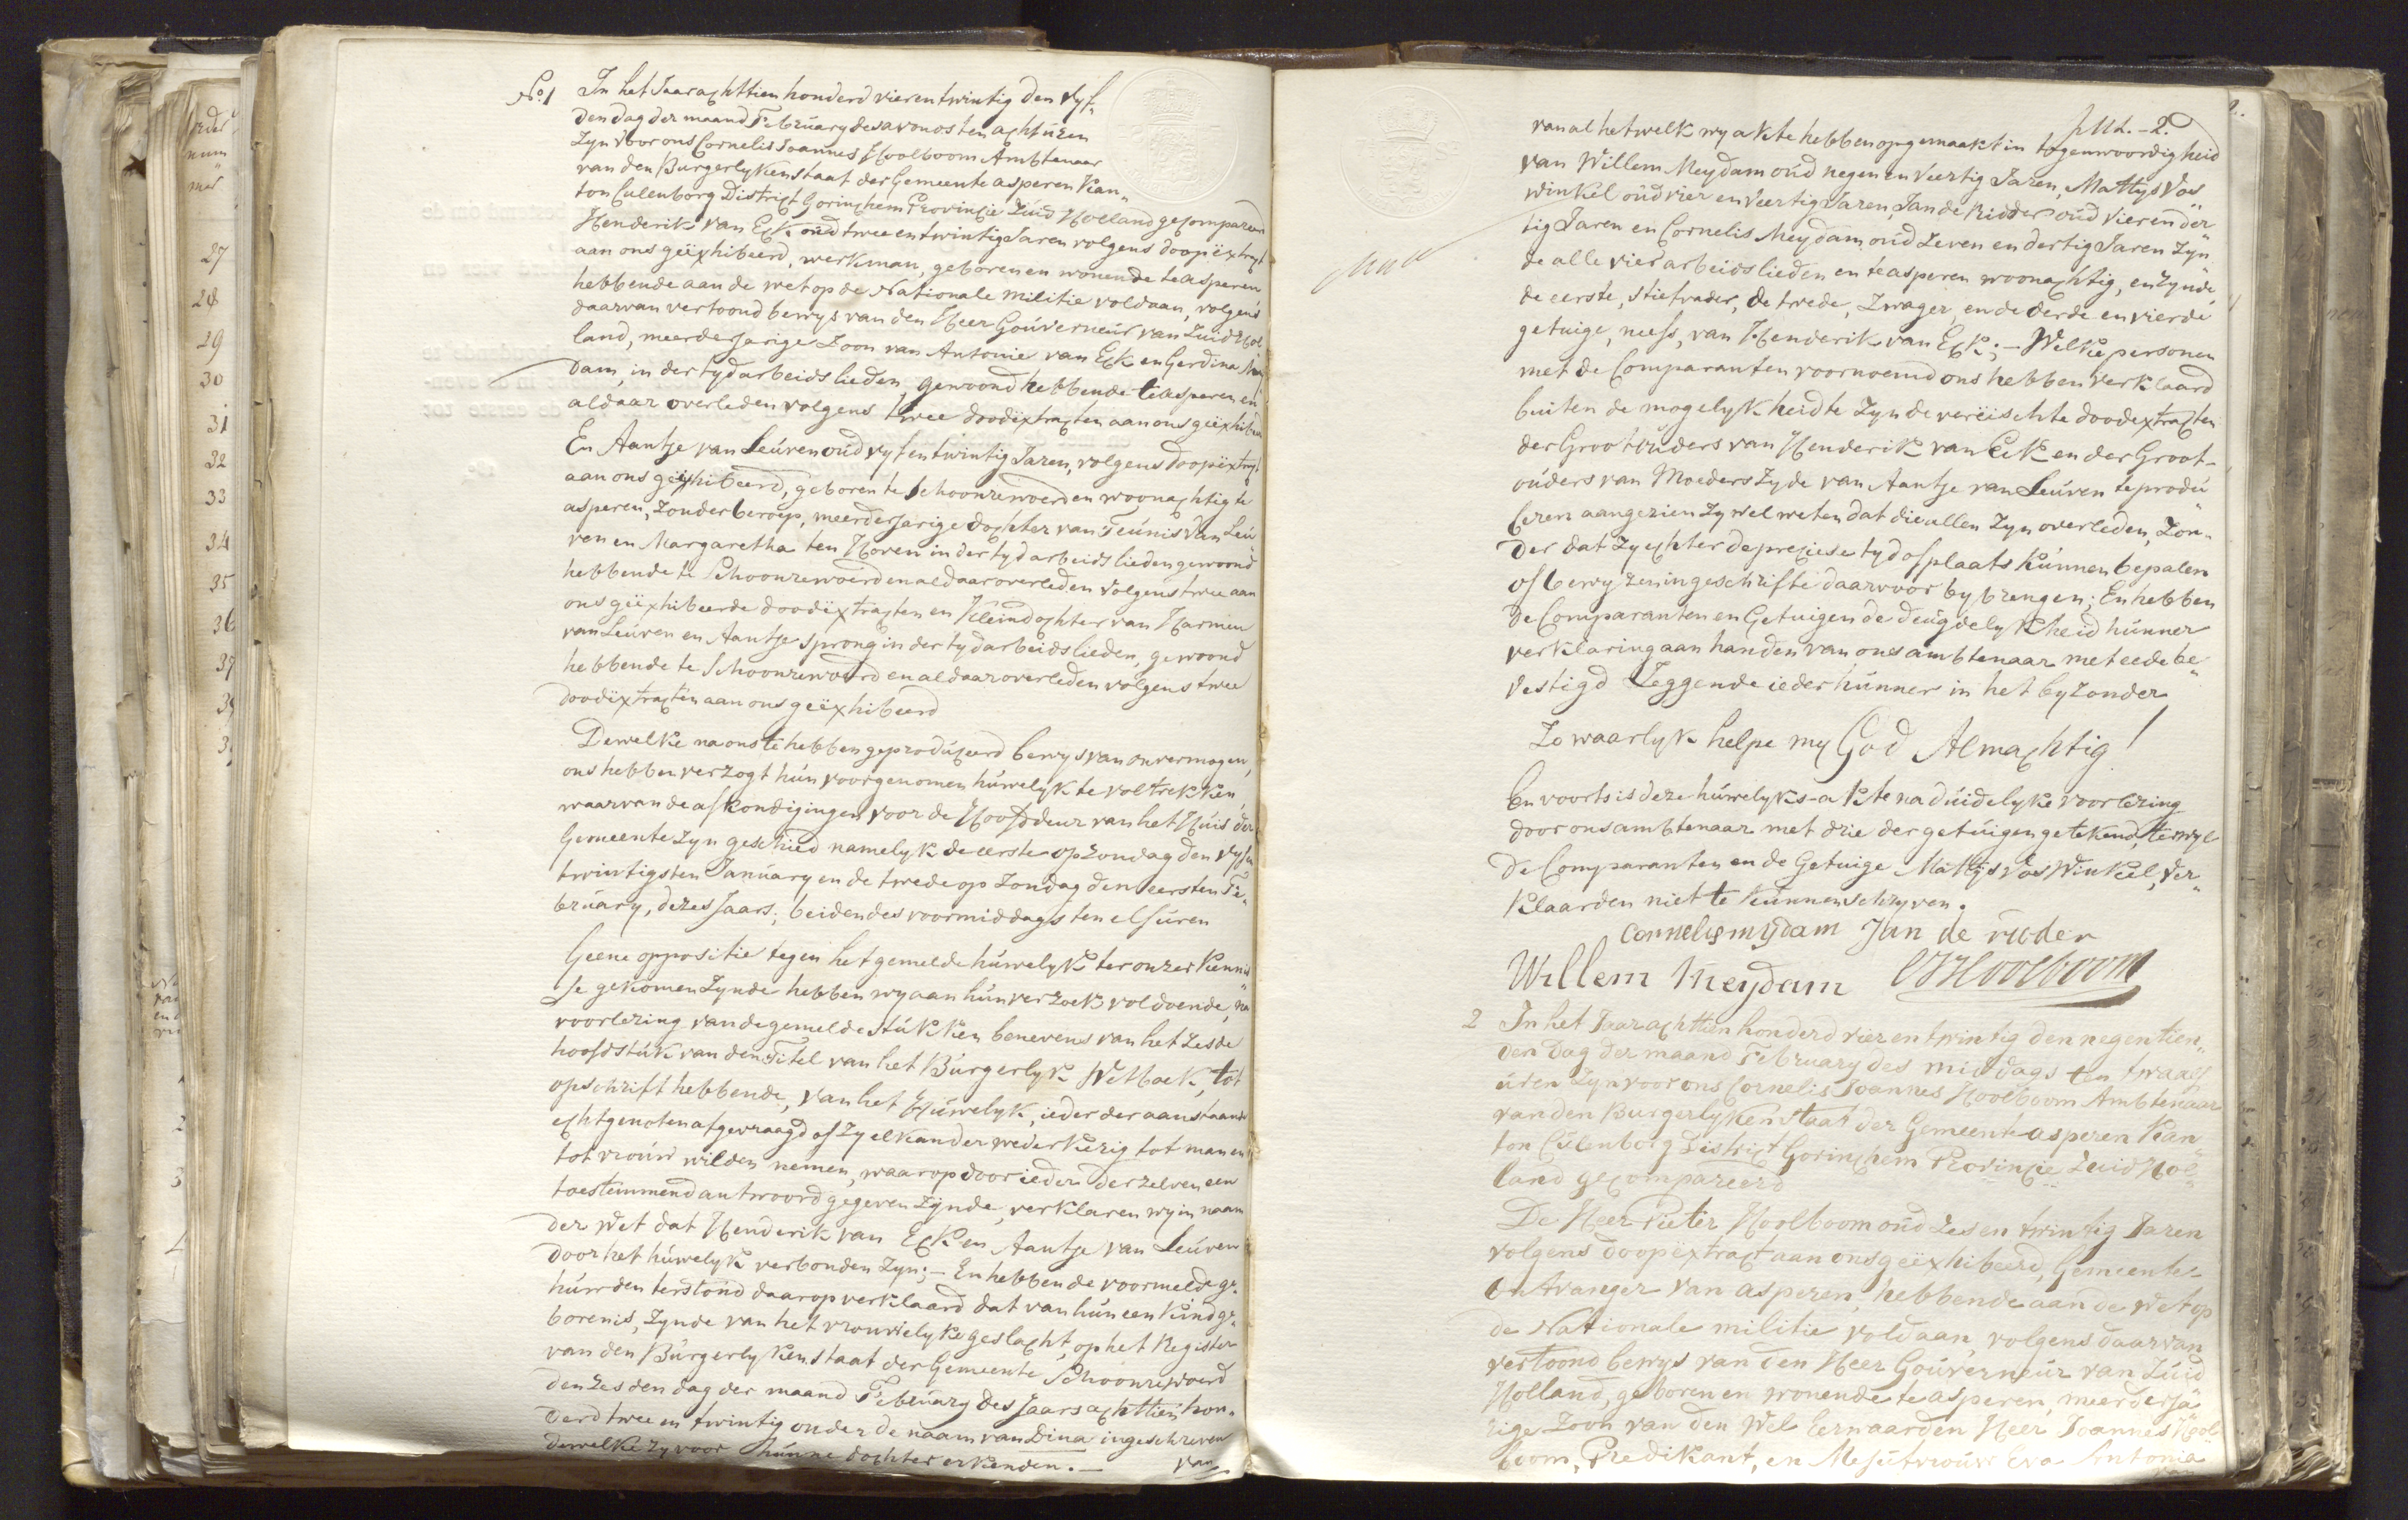 No. 1 In het Jaar achttien honderd vierentwintig den vyf„
den dag der maand February des avonds ten acht uren
Zyn voor ons Cornelis Joannes Hoolboom Ambtenaar
van den Burgerlyken staat der Gemeente asperen Kan„
ton Culenborg District Gorinchem Provincie Zuid Holland gecompareerd
Henderik van Eck oud twee en twintig Jaren volgens doopëxtract
aan ons geëxhibeerd, werkman, geboren en wonende te asperen
hebbende aan de wet op de Nationale militie voldaan, volgens
daarvan vertoond bewys van den Heer Gouverneur van Zuid Hol„
land, meerderjarige Zoon van Antonie van Eck en Gerdina Mey
dam, in der tyd arbeidslieden gewoond hebbende te asperen en
aldaar overleden volgens twee doodëxtracten aan ons geëxhibeerd
En Aantje van Leuven oud vyf en twintig Jaren, volgens doopëxtract
aan ons geëxhibeerd, geboren te Schoonrewoerd en woonachtig te
asperen, Zonder beroep, meerderjarige dochter van Teunis van Leu„
ven en Margaretha ten Hoven in der tyd arbeidslieden gewoond
hebbende te Schoonrewoerd en aldaar overleden volgens twee aan
ons geëxhibeerde doodëxtracten en Kleindochter van Harmen
van Leuven en Aantje Sprong in der tyd arbeidslieden, gewoond
hebbende te Schoonrewoerd en aldaar overleden volgens twee
doodëxtracten aan ons geëxhibeerd
Dewelke na ons te hebben geproduceerd bewys van onvermogen,
ons hebben verzogt hun voorgenomen huwelyk te voltrekken,
waarvan de afkondigingen voor de Hoofddeur van het Huis der
Gemeente Zyn geschied namelyk de eerste op Zondag den vyfen
twintigsten January en de twede op Zondag den eersten Fe„
bruary, dezes Jaars; beiden des voormiddags ten elf uren
Geene oppositie tegen het gemelde huwelyk ter onzer kennis
se gekomen Zynde hebben wy aan hun verzoek voldoende, na
voorlezing van de gemelde Stukken benevens van het Zesde
hoofdstuk van den Titel van het Burgerlyk Wetboek, tot
opschrift hebbende, van het Huwelyk, ieder der aanstaande
echtgenoten afgevraagd of Zy elkander wederkerig tot man en
tot vrouw wilden nemen, waarop door ieder derzelven een
toestemmend antwoord gegeven Zynde, verklaren wy in naam
der Wet dat Henderik van Eck en Aantje van Leuven
door het huwelyk verbonden Zyn;— En hebben de voormelde ge„
huwden terstond daarop verklaard dat van hun een Kind ge„
boren is, Zynde van het vrouwelyke geslacht, op het Register
van den Burgerlyken staat der Gemeente Schoonrewoerd
den Zesden dag der maand February des Jaars achttien hon„
derd twee en twintig onder de naam van Dina ingeschreven
dewelke Zy voor hunne dochter erkenden.—
van
van al het welk wy akte hebben opgemaakt in tegenwoordigheid
van Willem Meydam oud negen en veertig Jaren, Mattys Vos
winkel oud vier en veertig Jaren, Jan de Ridder oud vier en der„
tig Jaren en Cornelis Meydam oud Zeven en dertig Jaren Zyn„
de alle vier arbeidslieden en te asperen woonachtig, en Zynde
de eerste, stiefvader, de twede, Zwager, en de derde en vierde
getuige, neefs, van Henderik van Eck;— Welke personen
met de Comparanten voornoemd ons hebben verklaard
buiten de mogelykheid te Zyn de vereischte doodextracten
der Grootouders van Henderik van Eck en der Groot-
ouders van Moeders Zyde van Aantje van Leuven te produ„
ceren aangezien Zy wel weten dat die allen Zyn overleden, Zon„
der dat Zy echter de preciese tyd of plaats kunnen bepalen
of bewyzen in geschrifte daarvoor by brengen; En hebben
de Comparanten en Getuigen de deugdelykheid hunner
verklaring aan handen van ons ambtenaar met eede be„
vestigd Zeggende ieder hunner in het byzonder
Zo waarlyk helpe my God Almachtig!
En voorts is deze huwelyks-akte na duidelyke voorlezing
door ons ambtenaar met drie der getuigen getekend, terwyl
de Comparanten en de Getuige Mattys Vos Winkel, ver„
klaarden niet te kunnen schryven.
Cornelis mydam Jan de ridder
Willem Meydam CJHoolboom
2 In het Jaar achttien honderd vier en twintig den negentien„
den dag der maand February des middags ten twaalf
uren Zyn voor ons Cornelis Joannes Hoolboom Ambtenaar
van den Burgerlyken Staat der Gemeente asperen Kan„
ton Culenborg District Gorinchem Provincie Zuid Hol„
land gecompareerd
De Heer Pieter Hoolboom oud Zes en twintig Jaren
volgens doopëxtract aan ons geëxhibeerd, Gemeente-
Ontvanger van asperen, hebbende aan de Wet op
de Nationale militie voldaan, volgens daarvan
vertoond bewys van den Heer Gouverneur van Zuid
Holland, geboren en wonende te asperen, meerderja„
rige Zoon van den Wel Eerwaarden Heer Joannes Hool
boom, Predikant, en Mejufvrouw Eva Antonia
van
27
28
29
30
31
32
33
34
35
36
37